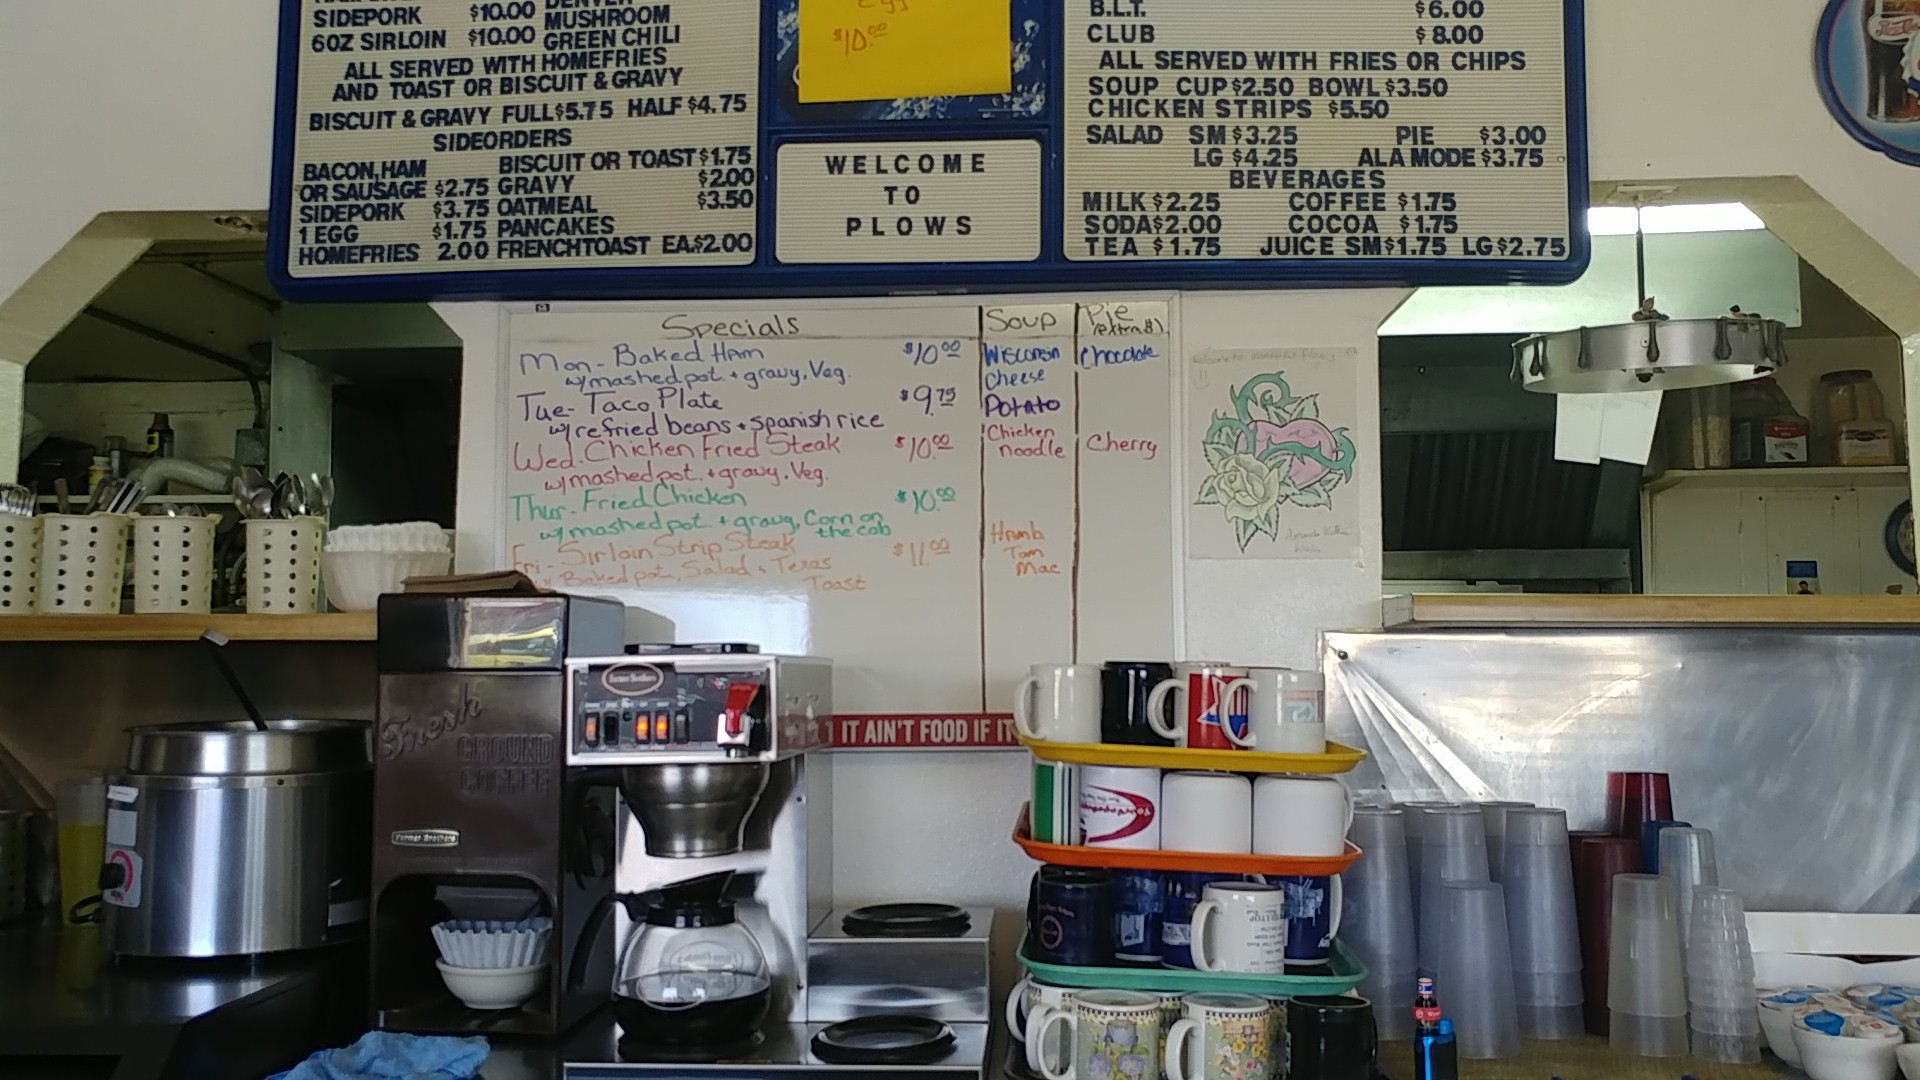 SIDEPORK $10.00
6OZ SIRLOIN $10.00
MUSHROOM
GREEN CHILI
ALL SERVED WITH HOMEFRIES
AND TOAST OR BISCUIT & GRAVY
BISCUIT & GRAVY FULL $5.75 HALF $4.75
SIDEORDERS
BACON, HAM
OR SAUSAGE $2.75
SIDEPORK $3.75
1 EGG $1.75
HOMEFRIES 2.00
BISCUIT OR TOAST $1.75
GRAVY $2.00
OATMEAL $3.50
PANCAKES
FRENCHTOAST EA. $2.00
Egg
$10.00
WELCOME
TO
PLOWS
B.L.T. $6.00
CLUB $8.00
ALL SERVED WITH FRIES OR CHIPS
SOUP CUP $2.50 BOWL $3.50
CHICKEN STRIPS $5.50
SALAD SM $3.25 PIE $3.00
LG $4.25 ALA MODE $3.75
BEVERAGES
MILK $2.25 COFFEE $1.75
SODA $2.00 COCOA $1.75
TEA $1.75 JUICE SM $1.75 LG $2.75
Specials
Mon - Baked Ham $10.00
w/mashed pot. + gravy, Veg.
Tue - Taco Plate $9.75
w/refried beans + spanish rice
Wed. Chicken Fried Steak $10.00
w/mashed pot. + gravy, Veg.
Thur - Fried Chicken $10.00
w/mashed pot + gravy, Corn on
the cob
Fri - Sirloin Strip Steak $11.00
Baked pot., Salad + Texas
Toast
Soup
Wisconsin
Cheese
Potato
Chicken
noodle
Hamb
Tom
Mac
Pie
(extra $)
Chocolate
Cherry
IT AIN'T FOOD IF IT
Fresh
GROUND
COFFEE
Farmer Brothers
Farmer Brothers